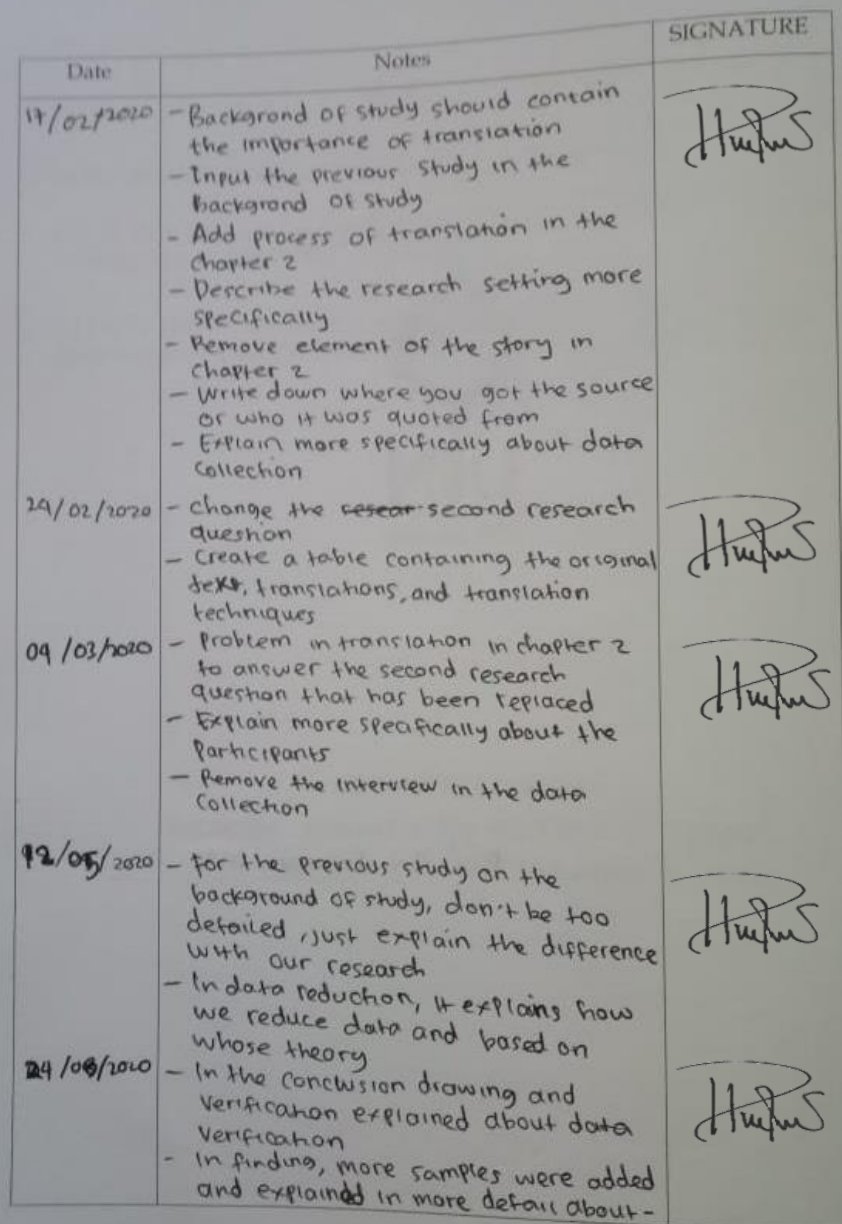 Date Notes SIGNATURE
17/02/2020 - Backgrond of study should contain
the importance of translation
- Input the previous study in the
backgrond of study
- Add process of translation in the
chapter 2
- Describe the research setting more
specifically
- Remove element of the story in
chapter 2
- Write down where you got the source
or who it was quoted from
- Explain more specifically about data
collection
24/02/2020 - change the second research
question
- Create a table containing the original
text, translations, and translation
techniques
09/03/2020 - Problem in translation in chapter 2
to answer the second research
question that has been replaced
- Explain more specifically about the
Participants
- Remove the interview in the data
collection
12/05/2020 - for the previous study on the
background of study, don't be too
detailed, just explain the difference
with our research
- In data reduction, it explains how
we reduce data and based on
whose theory
24/08/2020 - In the conclusion drawing and
verification explained about data
verification
- In finding, more samples were added
and explained in more detail about -